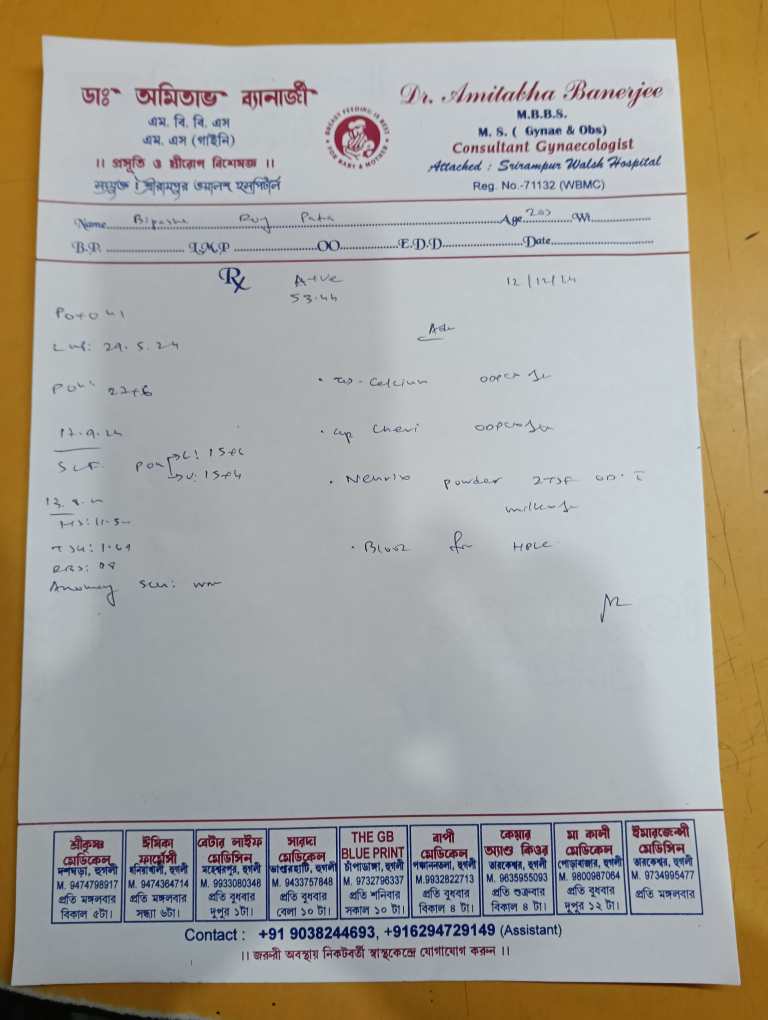 ডাঃ অমিতাভ ব্যানার্জী
এম. বি. বি. এস
এম. এস (গাইনি)
।। প্রসূতি ও স্ত্রীরোগ বিশেষজ্ঞ ।।
সংযুক্ত : শ্রীরামপুর ওয়ালশ হসপিটাল
BREAST FEEDING IS BEST FOR BABY & MOTHER
Dr. Amitabha Banerjee
M.B.B.S.
M. S. ( Gynae & Obs)
Consultant Gynaecologist
Attached : Srirampur Walsh Hospital
Reg. No.-71132 (WBMC)
Name Bipasha Roy Age 20y Wt.
B.P. L.M.P OO E.D.D Date
Rx A+ve 12/12/24
53.44
P0+0
LMP: 29.5.24
Adv
POG: 27+6
Tab. Calcium
17.9.24
Cap Cheri
SLF. POG
Neurix powder 2TSF OD
milk
TSH: 1.69
Blood for HPLC
Anomaly Scan:
শ্রীকৃষ্ণ মেডিকেল
দশঘড়া, হুগলী
M. 9474798917
প্রতি মঙ্গলবার
বিকাল ৫টা।
ঈশিকা ফার্মেসী
মনিরামবাটী, হুগলী
M. 9474364714
প্রতি মঙ্গলবার
সন্ধ্যা ৬টা।
বেটার লাইফ মেডিসিন
মহেশ্বরপুর, হুগলী
M. 9933080348
প্রতি বুধবার
দুপুর ১টা।
সারদা মেডিকেল
ভান্ডারহাটি, হুগলী
M. 9433757848
প্রতি বুধবার
বেলা ১০ টা।
THE GB
BLUE PRINT
চাঁপাডাঙ্গা, হুগলী
M. 9732796337
প্রতি শনিবার
সকাল ১০ টা।
বাপী মেডিকেল
পঞ্চাননতলা, হুগলী
M.9932822713
প্রতি বুধবার
বিকাল ৪ টা।
কেয়ার অ্যাণ্ড কিওর
তারকেশ্বর, হুগলী
M. 9635955093
প্রতি শুক্রবার
বিকাল ৪ টা।
মা কালী মেডিকেল
পোড়াবাজার, হুগলী
M. 9800987064
প্রতি বুধবার
দুপুর ১২ টা।
ইমারজেন্সী মেডিসিন
তারকেশ্বর, হুগলী
M. 9734995477
প্রতি মঙ্গলবার
Contact : +91 9038244693, +916294729149 (Assistant)
।। জরুরী অবস্থায় নিকটবর্তী স্বাস্থকেন্দ্রে যোগাযোগ করুন ।।